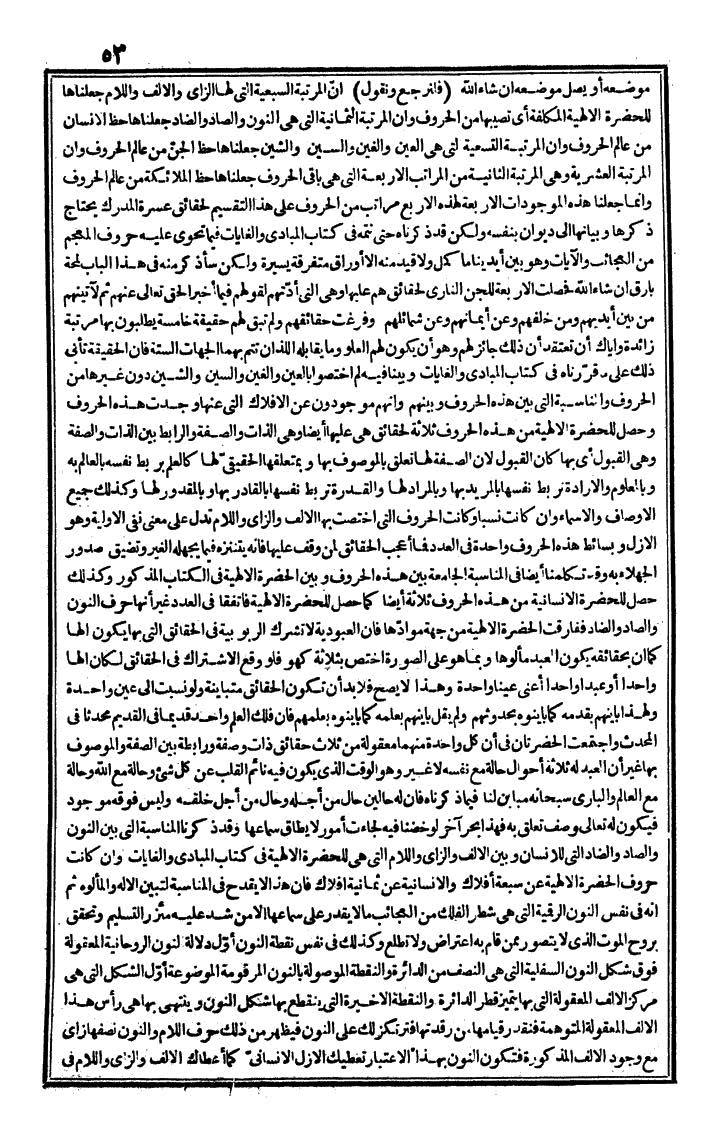 ٥٣
موضعه أو يصل موضعه ان شاء الله (فلنرجع ونقول) انّ المرتبة السبعية التي لها الزاى والالف واللام جعلناها
للحضرة الالهية المكلفة أى نصيبها من الحروف وان المرتبة الثمانية التي هى النون والصاد والضاد جعلناها حظ الانسان
من عالم الحروف وان المرتبة التسعية التى هى العين والغين والسين والشين جعلناها حظ الجنّ من عالم الحروف وان
المرتبة العشرية وهى المرتبة الثانية من المراتب الاربعة التى هى باقى الحروف جعلناها حظ الملائكة من عالم الحروف
وانما جعلنا هذه الموجودات الاربعة لهذه الاربع مراتب من الحروف على هذا التقسيم لحقائق عسرة المدرك يحتاج
ذكرها وبيانها الى ديوان بنفسه ولكن قد ذكرناه حتى نتمه فى كتاب المبادى والغايات فيما تحوى عليه حروف المعجم
من العجائب والآيات وهو بين أيدينا ما كمل ولا قيد منه الا أوراق متفرقة يسيرة ولكن سأذكر منه فى هذا الباب لمحة
بارق ان شاء الله فصلت الاربعة للجن النارى لحقائق هم عليها وهى التى أدّتهم لقولهم فيما أخبر الحق تعالى عنهم ثم لآتينهم
من بين أيديهم ومن خلفهم وعن أيمانهم وعن شمائلهم وفرغت حقائقهم ولم تبق لهم حقيقة خامسة يطلبون بها مرتبة
زائدة واياك أن تعتقد أن ذلك جائز لهم وهو أن يكون لهم العلو وما يقابله اللذان تتم بهما الجهات الستة فان الحقيقة تأبى
ذلك على ما قررناه فى كتاب المبادى والغايات وبينا فيه لم اختصوا بالعين والغين والسين والشين دون غيرها من
الحروف والمناسبة التى بين هذه الحروف وبينهم وانهم موجودون عن الافلاك التى عنها وجدت هذه الحروف
وحصل للحضرة الالهية من هذه الحروف ثلاثة لحقائق هى عليها أيضا وهى الذات والصفة والرابط بين الذات والصفة
وهى القبول أى بها كان القبول لان الصفة لها تعلق بالموصوف بها وبمتعلقها الحقيقى لها كالعلم يربط نفسه بالعالم به
وبالمعلوم والارادة تربط نفسها بالمريد بها وبالمراد لها والقدرة تربط نفسها بالقادر بها وبالمقدور لها وكذلك جميع
الاوصاف والاسماء وان كانت نسبا وكانت الحروف التى اختصت بها الالف والزاى واللام تدل على معنى نفى الاولية وهو
الازل وبسائط هذه الحروف واحدة فى العدد فما أعجب الحقائق لمن وقف عليها فانه يتنزه فيما يجهله الغير وتضيق صدور
الجهلاء به وقد تكلمنا أيضا فى المناسبة الجامعة بين هذه الحروف وبين الحضرة الالهية فى الكتاب المذكور وكذلك
حصل للحضرة الانسانية من هذه الحروف ثلاثة أيضا كما حصل للحضرة الالهية فاتفقا فى العدد غير أنها حرف النون
والصاد والضاد ففارقت الحضرة الالهية من جهة موادّها فان العبودية لا تشرك الربوبية فى الحقائق التى بها يكون الها
كما ان بحقائقه يكون العبد مألوها وبما هو على الصورة اختص بثلاثة كهو فلو وقع الاشتراك فى الحقائق لكان الها
واحدا أو عبدا واحدا أعنى عينا واحدة وهذا لا يصح فلا بد أن تكون الحقائق متباينة ولو نسبت الى عين واحدة
ولهذا باينهم بقدمه كما باينوه بحدوثهم ولم يقل باينهم بعلمه كما باينوه بعلمهم فان فلك العلم واحد قديما فى القديم محدثا فى
المحدث واجتمعت الحضرتان فى أن كل واحدة منهما معقولة من ثلاث حقائق ذات وصفة ورابطة بين الصفة والموصوف
بها غير أن العبد له ثلاثة أحوال حالة مع نفسه لا غير وهو الوقت الذى يكون فيه نائم القلب عن كل شئ وحالة مع الله وحالة
مع العالم والبارى سبحانه مباين لنا فيما ذكرناه فان له حالين حال من أجله وحال من أجل خلقه وليس فوقه موجود
فيكون له تعالى وصف تعلق به فهذا بحر آخر لو خضنا فيه لجاءت أمور لا يطاق سماعها وقد ذكرنا المناسبة التى بين النون
والصاد والضاد التى للانسان وبين الالف والزاى واللام التى هى للحضرة الالهية فى كتاب المبادى والغايات وان كانت
حروف الحضرة الالهية عن سبعة أفلاك والانسانية عن ثمانية افلاك فان هذا لا يقدح فى المناسبة لتبين الاله والمألوه ثم
انه فى نفس النون الرقمية التى هى شطر الفلك من العجائب ما لا يقدر على سماعها الا من شد عليه مئزر التسليم وتحقق
بروح الموت الذى لا يتصور ممن قام به اعتراض ولا تطلع وكذلك فى نفس نقطة النون أوّل دلالة النون الروحانية المعقولة
فوق شكل النون السفلية التى هى النصف من الدائرة والنقطة الموصولة بالنون المرقومة الموضوعة أوّل الشكل التى هى
مركز الالف المعقولة التى بها يتميز قطر الدائرة والنقطة الاخيرة التى ينقطع بها شكل النون وينتهى بها هى رأس هذا
الالف المعقولة المتوهمة فنقدر قيامها من رقدتها فترتكز لك على النون فيظهر من ذلك حرف اللام والنون نصفها زاى
مع وجود الالف المذكورة فتكون النون بهذا الاعتبار تعطيك الازل الانسانىّ كما أعطاك الالف والزاى واللام فى